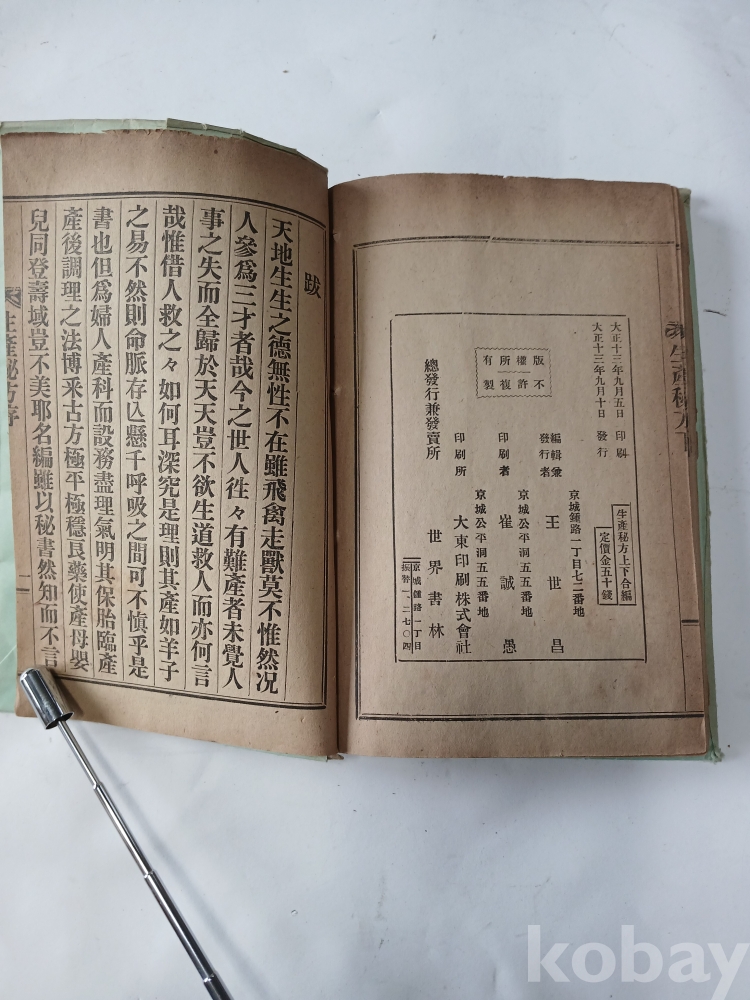 生產秘方下
生產秘方上下合編
定價金五十錢
大正十三年九月五日 印刷
大正十三年九月十日 發行
京城鍾路一丁目七二番地
編輯兼發行者 王世昌
京城公平洞五五番地
印刷者 崔誠愚
京城公平洞五五番地
印刷所 大東印刷株式會社
版權所有
不許複製
總發行兼發賣所 世界書林
京城鍾路一丁目
振替一、二七〇四
跋
天地生生之德無性不在雖飛禽走獸莫不惟然況
人參爲三才者哉今之世人徃々有難產者未覺人
事之失而全歸於天天豈不欲生道救人而亦何言
哉惟借人救之々如何耳深究是理則其產如羊子
之易不然則命脈存亾懸千呼吸之間可不慎乎是
書也但爲婦人產科而設務盡理氣明其保胎臨產
產後調理之法博釆古方極平極穩良藥使產母嬰
兒同登壽域豈不美耶名編雖以秘書然知而不言
生產秘方序 一
kobay